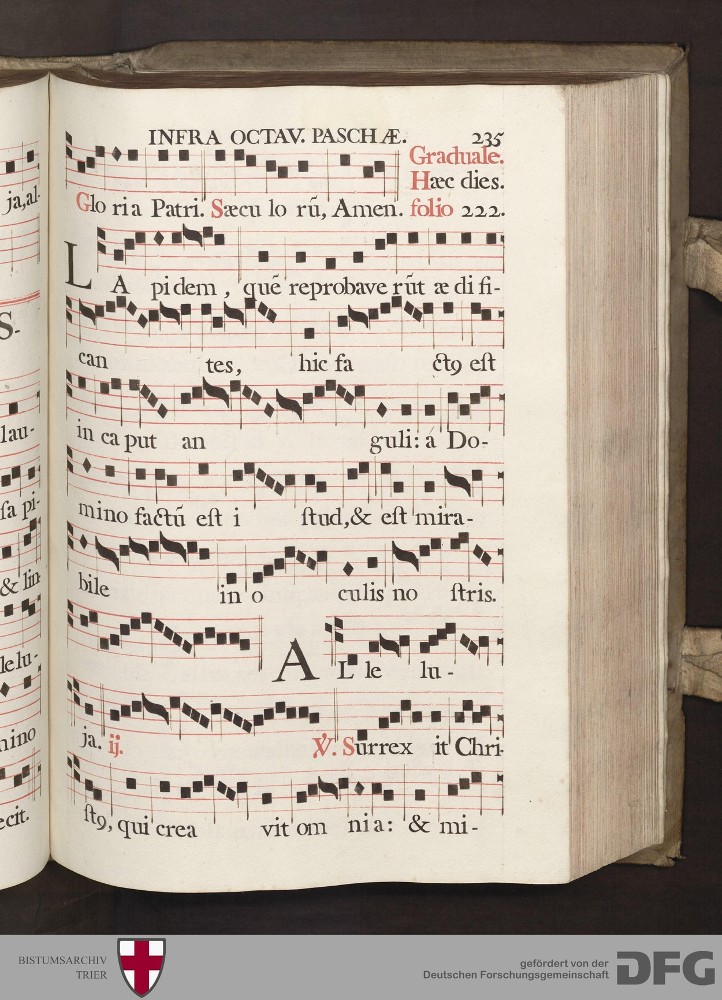 INFRA OCTAV. PASCHÆ. 235
Graduale.
Hæc dies.
Glo ri a Patri. Sæcu lo rũ, Amen. folio 222.
LA pi dem, quẽ reprobave rũt æ di fi-
can tes, hic fa ctꝯ est
in ca put an guli: a Do-
mino factũ est i stud, & est mira-
bile in o culis no stris.
AL le lu-
ja. ij. ℣. Surrex it Chri-
stꝯ, qui crea vit om ni a: & mi-
ja, al-
S-
lau-
sa pi-
& lin-
le lu-
mino
ecit.
BISTUMSARCHIV
TRIER
gefördert von der
Deutschen Forschungsgemeinschaft
DFG